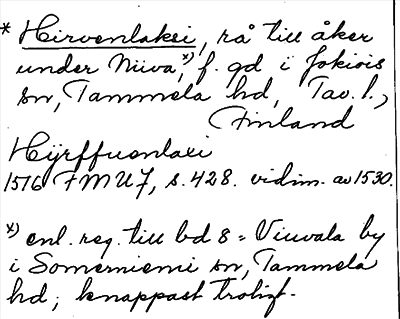 * Hirvenlaksi, rå till åker
under Niuva,*) f. gd i Jokiois
sn, Tammela hd, Tav. l.,
Finland
Hÿrffuenlaxi
1516 FMU 7, s. 428. vidim. av 1530.
*) enl. reg. till bd 8 = Viuvala by
i Somerniemi sn, Tammela
hd; knappast troligt.